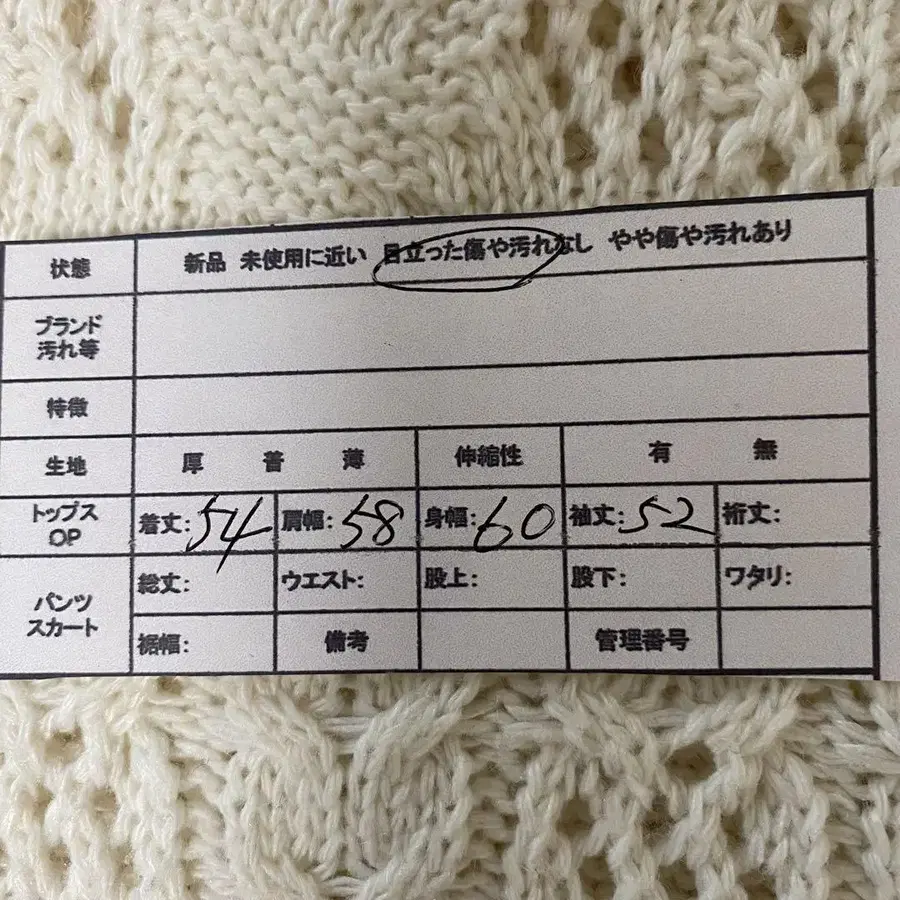 状態 新品 未使用に近い 目立った傷や汚れなし やや傷や汚れあり
ブランド
汚れ等
特徴
生地 厚 普 薄 伸縮性 有 無
トップス
OP
着丈:54 肩幅:58 身幅:60 袖丈:52 裄丈:
パンツ
スカート
総丈: ウエスト: 股上: 股下: ワタリ:
裾幅: 備考 管理番号